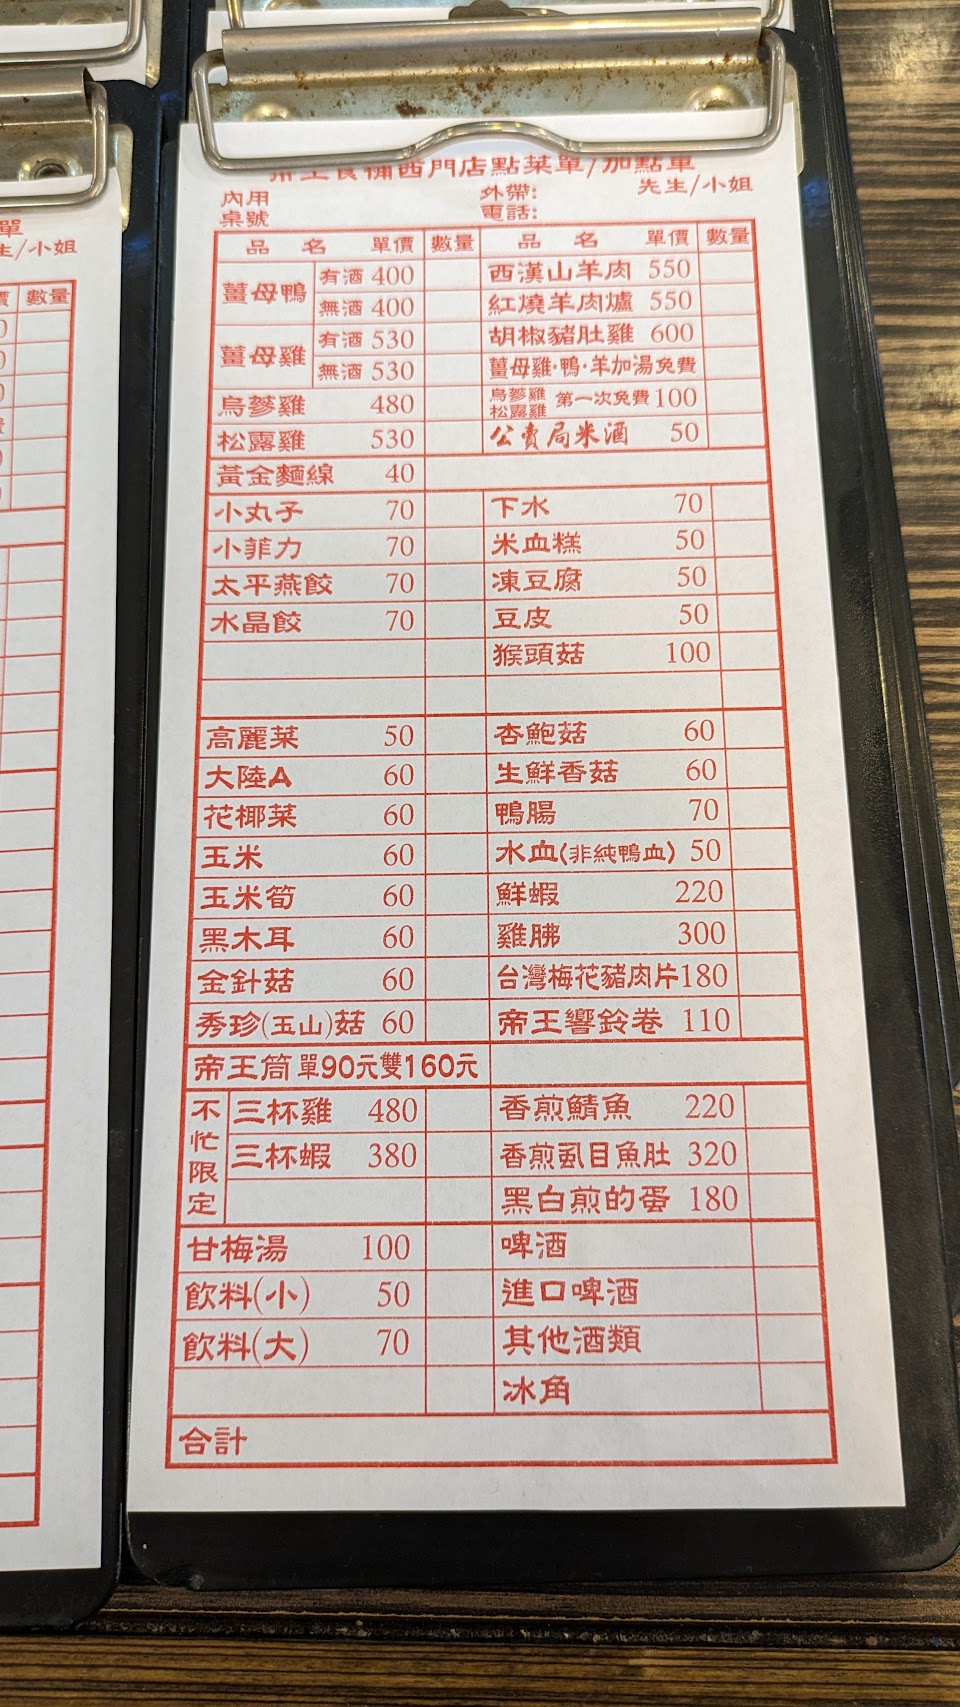 帝王食補西門店點菜單/加點單
內用 外帶: 先生/小姐
桌號 電話:
品名 單價 數量 品名 單價 數量
薑母鴨 有酒 400 西漢山羊肉 550
無酒 400 紅燒羊肉爐 550
薑母雞 有酒 530 胡椒豬肚雞 600
無酒 530 薑母雞·鴨·羊加湯免費
烏蔘雞 480 烏蔘雞 松露雞 第一次免費 100
松露雞 530 公賣局米酒 50
黃金麵線 40
小丸子 70 下水 70
小菲力 70 米血糕 50
太平燕餃 70 凍豆腐 50
水晶餃 70 豆皮 50
猴頭菇 100
高麗菜 50 杏鮑菇 60
大陸A 60 生鮮香菇 60
花椰菜 60 鴨腸 70
玉米 60 水血(非純鴨血) 50
玉米筍 60 鮮蝦 220
黑木耳 60 雞胇 300
金針菇 60 台灣梅花豬肉片 180
秀珍(玉山)菇 60 帝王響鈴卷 110
帝王筒 單90元雙160元
不忙限定 三杯雞 480 香煎鯖魚 220
三杯蝦 380 香煎虱目魚肚 320
黑白煎的蛋 180
甘梅湯 100 啤酒
飲料(小) 50 進口啤酒
飲料(大) 70 其他酒類
冰角
合計
單
生/小姐
價 數量